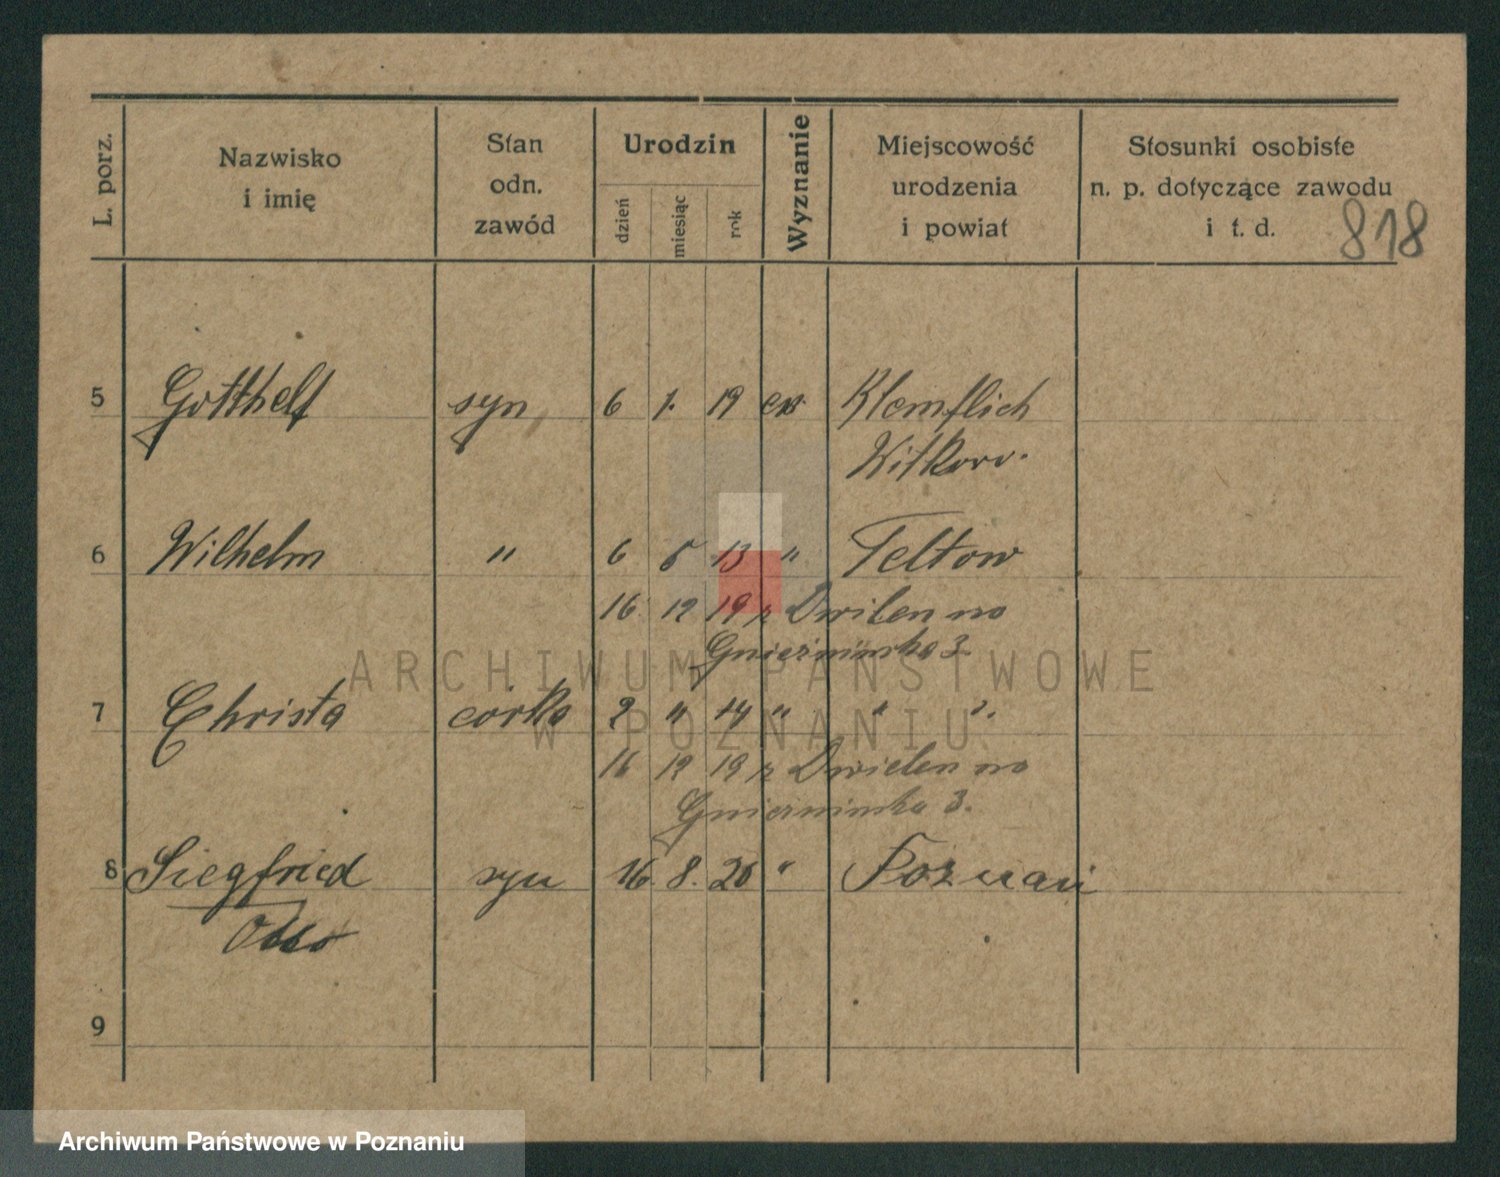 L. porz.
Nazwisko
i imię
Stan
odn.
zawód
Urodzin
dzień
miesiąc
rok
Wyznanie
Miejscowość
urodzenia
i powiat
Stosunki osobiste
n. p. dotyczące zawodu
i t. d.
818
5 Gotthelf syn 6 1. 19 ew
Witkow.
6 Wilhelm " 6 5 13 " Teltow
16 12 19 z
3.
ARCHIWUM PAŃSTWOWE
7 Christa córka 2 " 14 " " ".
W POZNANIU
16 12 19 z
3.
8 Siegfried syn 16. 8. 20 " Poznań
Otto
9
Archiwum Państwowe w Poznaniu